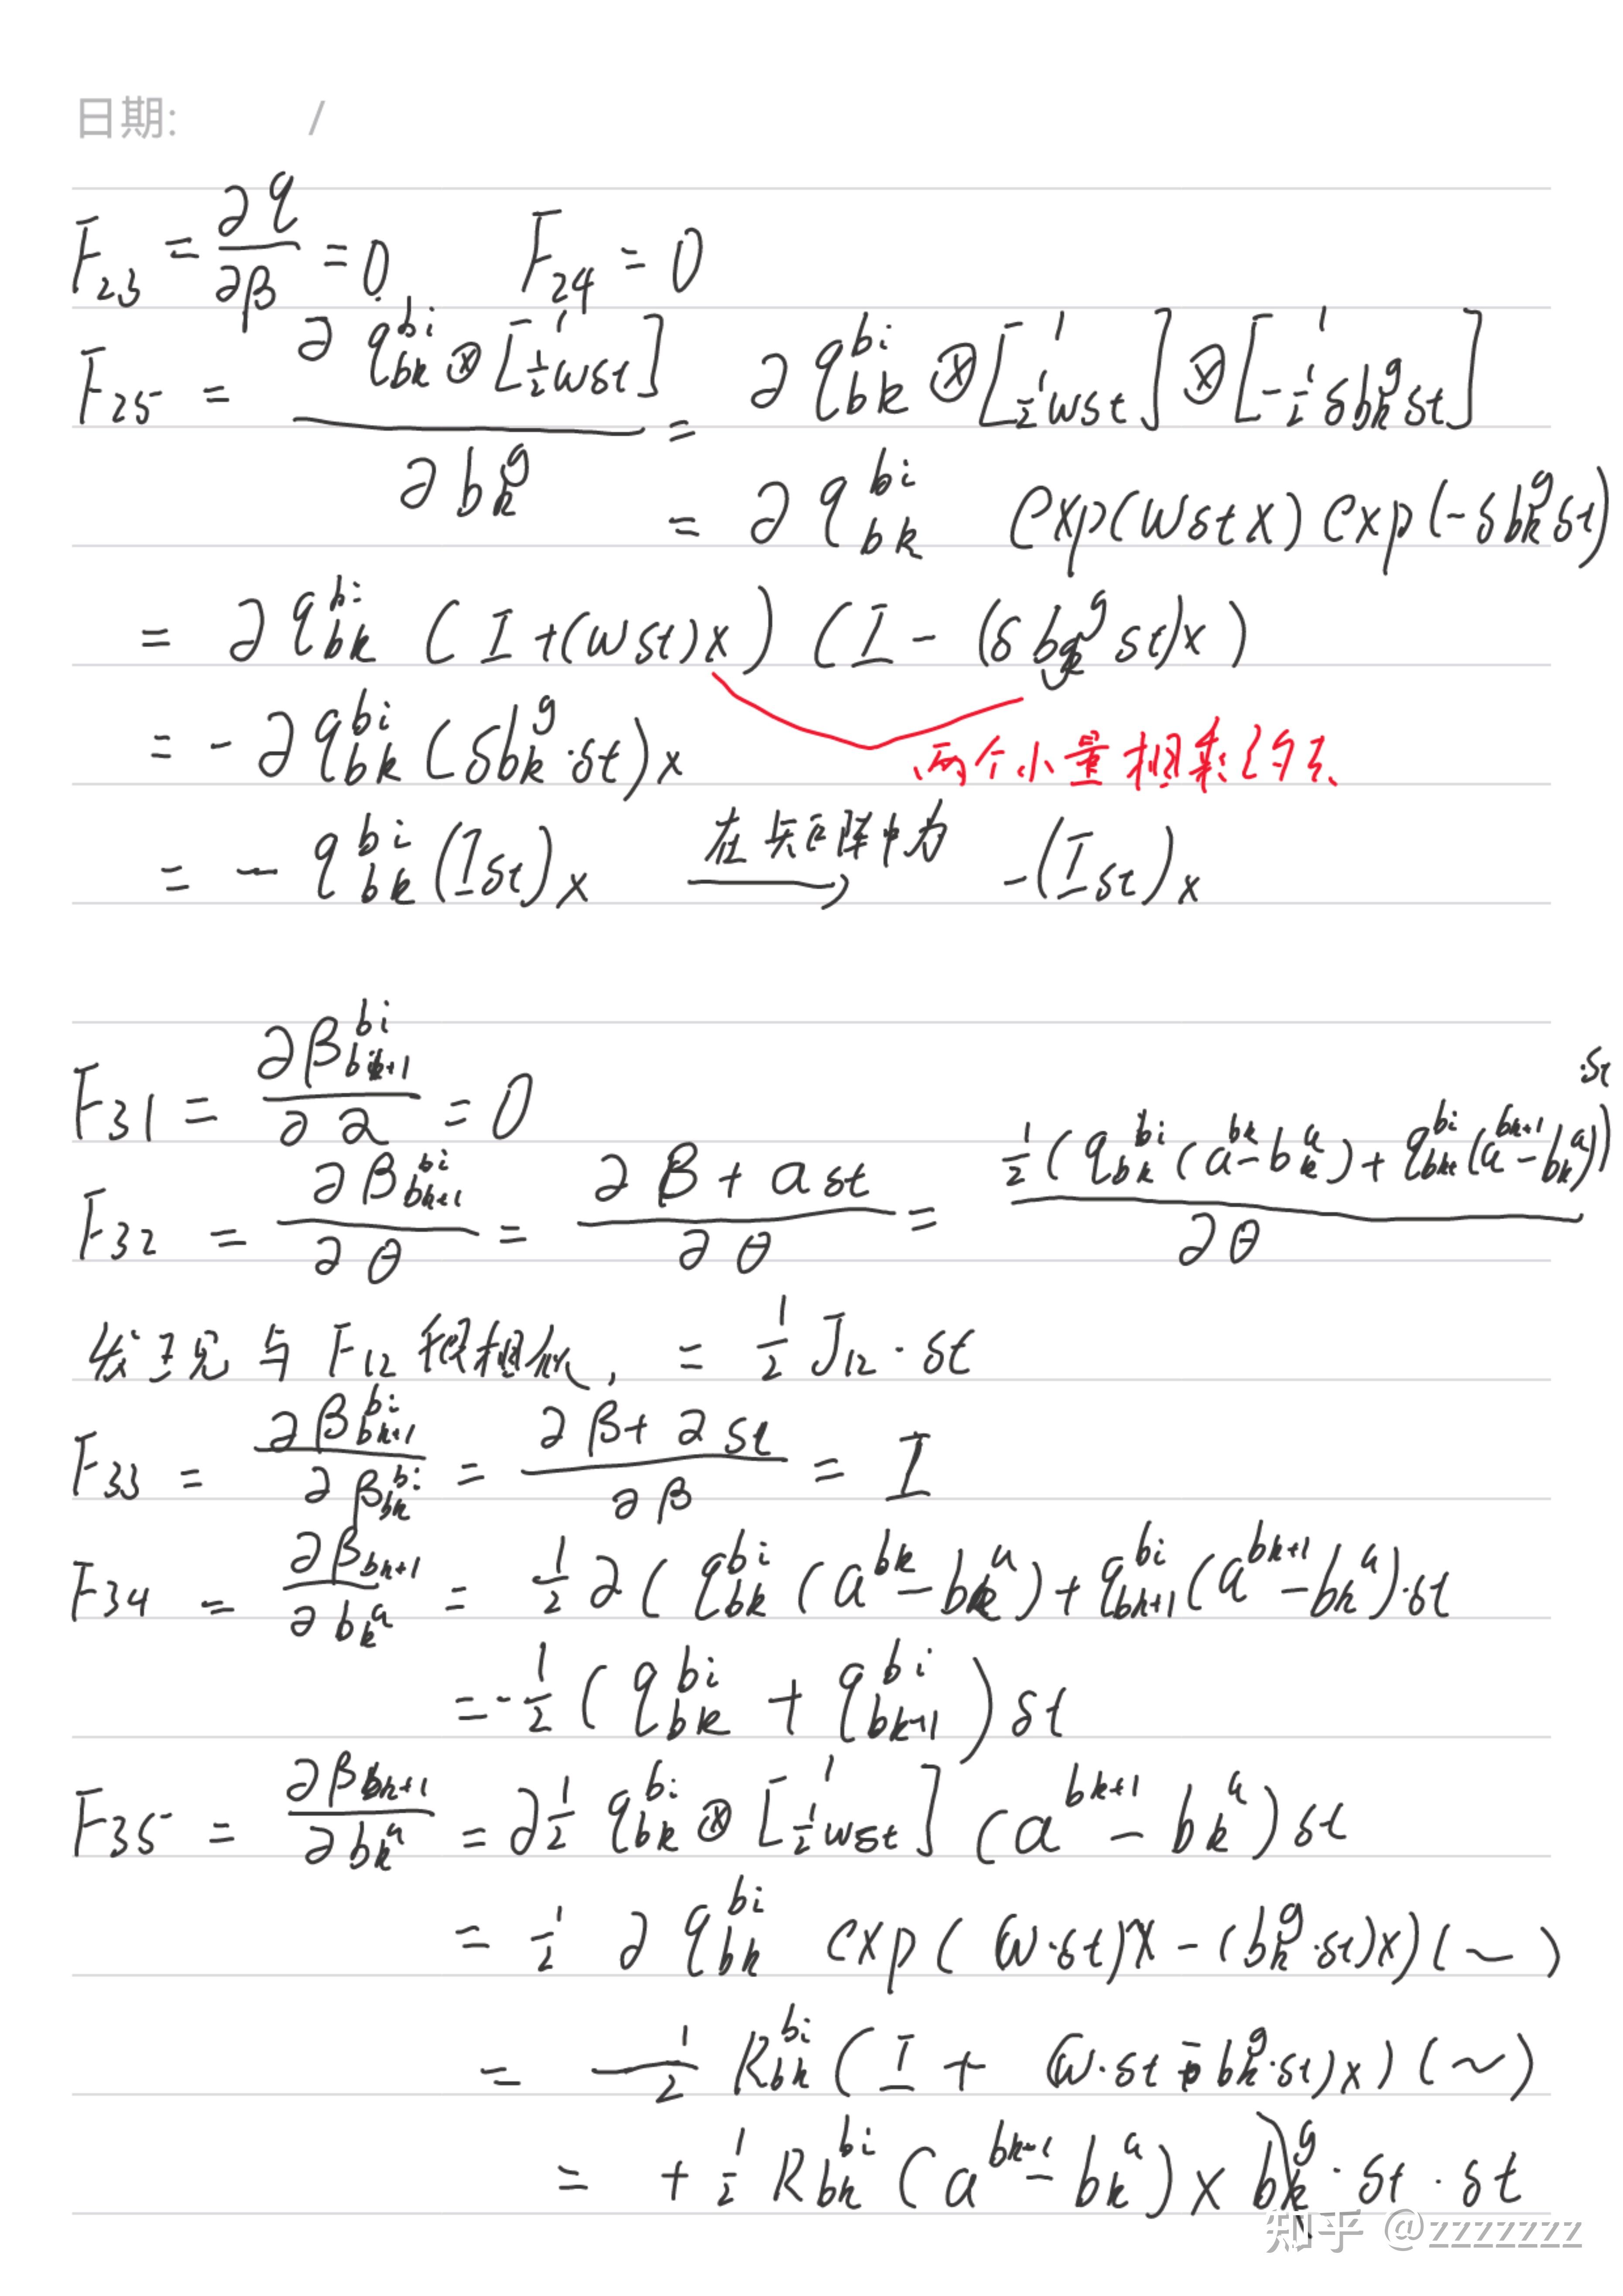 日期: /
F₂₃ = ∂q/∂β = 0 F₂₄ = 0
F₂₅ = ∂ q_{bk}^{bi} ⊗ [1 ½wδt] / ∂b_k^g = ∂ q_{bk}^{bi} ⊗ [1 ½wδt] ⊗ [1 -½δb_k^g δt]
= ∂ q_{bk}^{bi} exp(wδt×) exp(-δb_k^g δt)
= ∂ q_{bk}^{bi} (I + (wδt)×) (I - (δb_k^g δt)×)
= -∂ q_{bk}^{bi} (δb_k^g·δt)×
两个小量相乘约去
= - q_{bk}^{bi} (Iδt)× 在矩阵中为 → -(Iδt)×
F₃₁ = ∂β_{bk+1}^{bi} / ∂α = 0
F₃₂ = ∂β_{bk+1}^{bi} / ∂θ = ∂ β + aδt / ∂θ = ½(q_{bk}^{bi}(a^{bk} - b_k^a) + q_{bk+1}^{bi}(a^{bk+1} - b_k^a))·δt / ∂θ
发现与 F₁₂ 很相似, = ½ J₁₂·δt
F₃₃ = ∂β_{bk+1}^{bi} / ∂β_{bk}^{bi} = ∂ β + aδt / ∂β = I
F₃₄ = ∂β_{bk+1} / ∂b_k^a = ½∂(q_{bk}^{bi}(a^{bk} - b_k^a) + q_{bk+1}^{bi}(a^{bk+1} - b_k^a)·δt
= -½(q_{bk}^{bi} + q_{bk+1}^{bi})δt
F₃₅ = ∂β_{bk+1} / ∂b_k^a = ∂½ q_{bk}^{bi} ⊗ [1 ½wδt] (a^{bk+1} - b_k^a)δt
= ½ ∂ q_{bk}^{bi} exp((w·δt)× - (b_k^g·δt)×)(~)
= -½ R_{bk}^{bi} (I + (w·δt - b_k^g·δt)×)(~)
= +½ R_{bk}^{bi} (a^{bk+1} - b_k^a)× b_k^g·δt·δt
知乎 @zzzzzzz